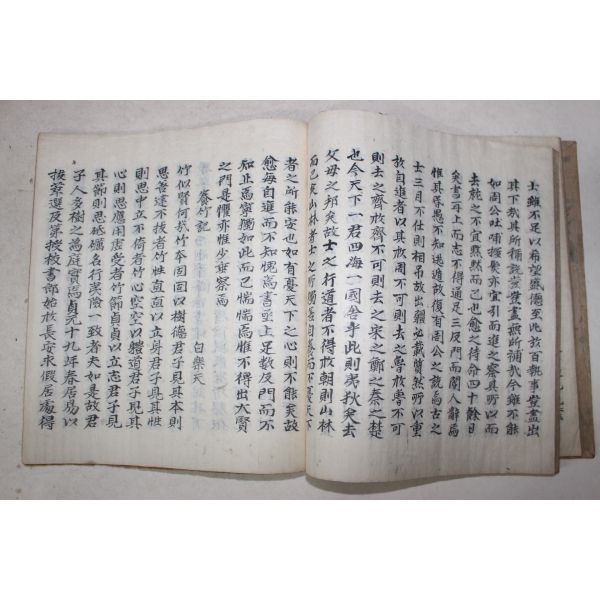 士雖不足以希望盛德至比於百執事豈盡出
其下哉其所稱說豈盡無所補哉今雖不能
如周公吐哺握髮亦宜引而進之察其所以而
去就之不宜黙黙而已也愈之待命四十餘日
矣書再上而志不得通足三及門而閽人辭焉
惟其昏愚不知逃遁故復有周公之說焉古之
士三月不仕則相吊故出疆必載質然所以重
於自進者以其於周不可則去之魯於魯不可
則去之齊於齊不可則去之宋之鄭之秦之楚
也今天下一君四海一國舍乎此則夷狄矣去
父母之邦矣故士之行道者不得於朝則山林
而已矣山林者士之所獨善自養而不憂天下
者之所能安也如有憂天下之心則不能矣故
愈每自進而不知愧焉書亟上足數及門而不
知止焉寧獨如此而已惴惴焉惟不得出大賢
之門是懼亦惟少垂察焉
養竹記 白樂天
竹似賢何哉竹本固固以樹德君子見其本則
思善建不拔者竹性直直以立身君子見其性
則思中立不倚者竹心空空以體道君子見其
心則思應用虛受者竹節貞貞以立志君子見
其節則思砥礪名行夷險一致者夫如是故君
子人多樹之為庭實焉貞元十九年春居易以
拔萃選及第授校書郎始於長安求假居處得